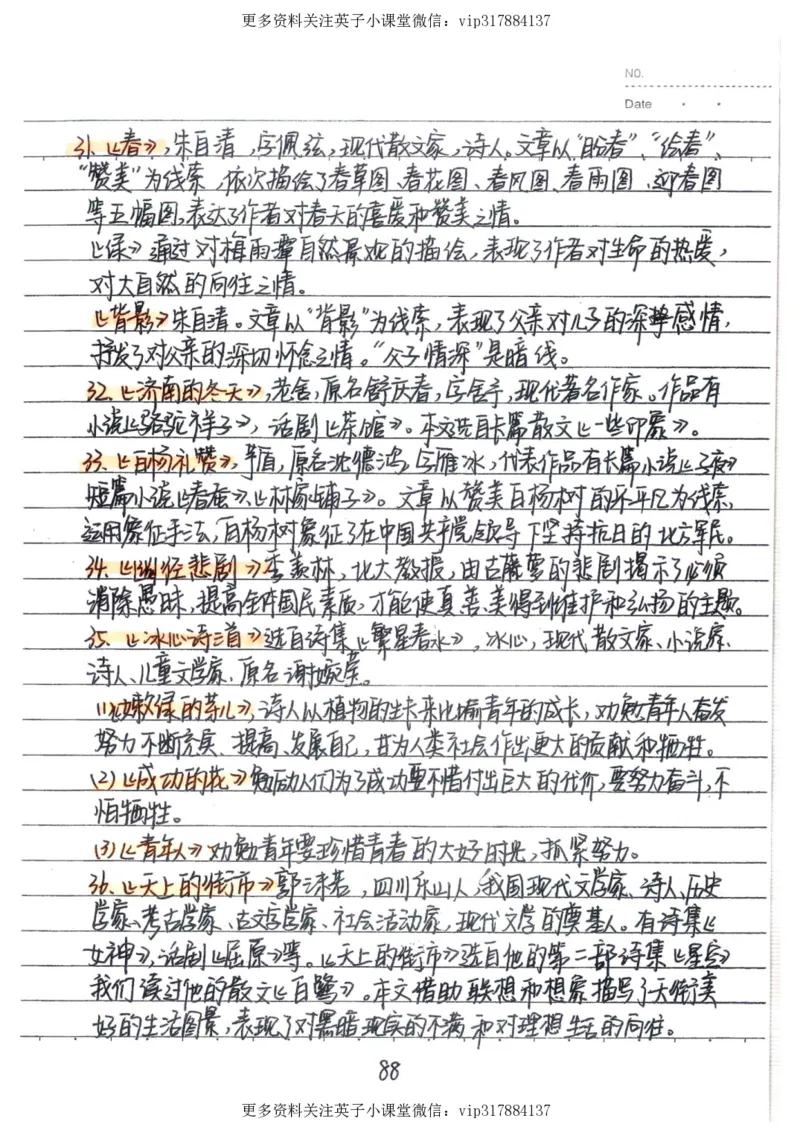 更多资料关注英子小课堂微信：vip317884137
NO.
Date
31、《春》，朱自清，字佩弦，现代散文家，诗人。文章以“盼春”、“绘春”、
“赞美”为线索，依次描绘了春草图、春花图、春风图、春雨图、迎春图
等五幅图，表达了作者对春天的喜爱和赞美之情。
《绿》通过对梅雨潭自然景观的描绘，表现了作者对生命的热爱，
对大自然的向往之情。
《背影》朱自清。文章以“背影”为线索，表现了父亲对儿子的深挚感情，
抒发了对父亲的深切怀念之情。“父子情深”是暗线。
32、《济南的冬天》，老舍，原名舒庆春，字舍予，现代著名作家。作品有
小说《骆驼祥子》，话剧《茶馆》。本文选自长篇散文《一些印象》。
33、《白杨礼赞》，茅盾，原名沈德鸿，字雁冰，代表作品有长篇小说《子夜》
短篇小说《春蚕》、《林家铺子》。文章以赞美白杨树的不平凡为线索，
运用象征手法，白杨树象征了在中国共产党领导下坚持抗日的北方军民。
34、《幽径悲剧》季羡林，北大教授，由古藤萝的悲剧揭示了必须
消除愚昧，提高全体国民素质，才能使真、善、美得到维护和弘扬的主题。
35、《冰心诗三首》选自诗集《繁星春水》，冰心，现代散文家、小说家、
诗人、儿童文学家，原名谢婉莹。
(1)《嫩绿的芽儿》，诗人以植物的生长来比喻青年的成长，劝勉青年人奋发
努力不断充实、提高、发展自己，甘为人类社会作出更大的贡献和牺牲。
(2)《成功的花》勉励人们为了成功要不惜付出巨大的代价，要努力奋斗，不
怕牺牲。
(3)《青年人》劝勉青年要珍惜青春的大好时光，抓紧努力。
36、《天上的街市》郭沫若，四川乐山人，我国现代文学家、诗人、历史
学家、考古学家、古文字学家、社会活动家，现代文学的奠基人。有诗集《
女神》，话剧《屈原》等。《天上的街市》选自他的第二部诗集《星空》
我们读过他的散文《白鹭》。本文借助联想和想象描写了天街美
好的生活图景，表现了对黑暗现实的不满和对理想生活的向往。
88
更多资料关注英子小课堂微信：vip317884137